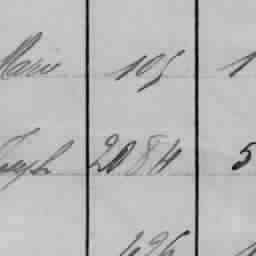 Marie 105 1
Joseph 2084 5
426